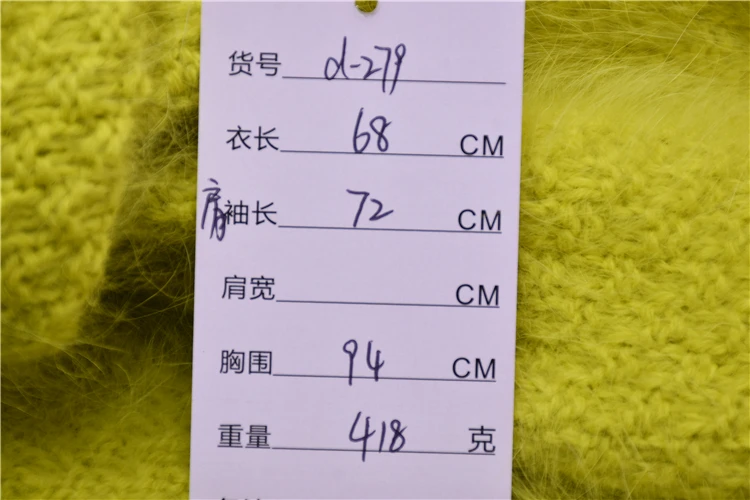 货号 d-279
衣长 68 CM
肩袖长 72 CM
肩宽 CM
胸围 94 CM
重量 418 克